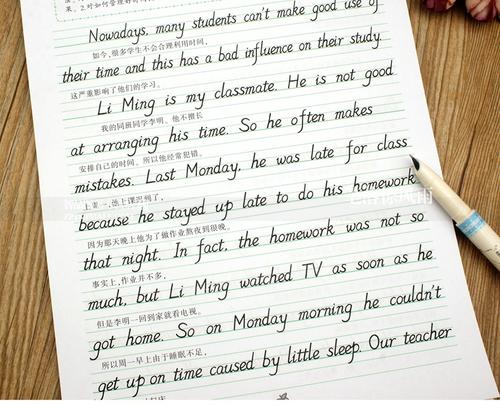 Nowadays, many students can't make good use of
如今,很多学生不会合理利用时间,
their time and this has a bad influence on their study.
这严重影响了他们的学习。
Li Ming is my classmate. He is not good
我的同班同学李明。他不擅长
at arranging his time. So he often makes
安排自己的时间。所以他经常犯错。
mistakes. Last Monday, he was late for class
上周一,他上课迟到了,
because he stayed up late to do his homework
因为那天晚上他为了做作业熬夜到很晚。
that night. In fact, the homework was not so
事实上,作业并不多,
much, but Li Ming watched TV as soon as he
但是李明一回到家就看电视。
got home. So on Monday morning he couldn't
所以周一早上由于睡眠不足,
get up on time caused by little sleep. Our teacher